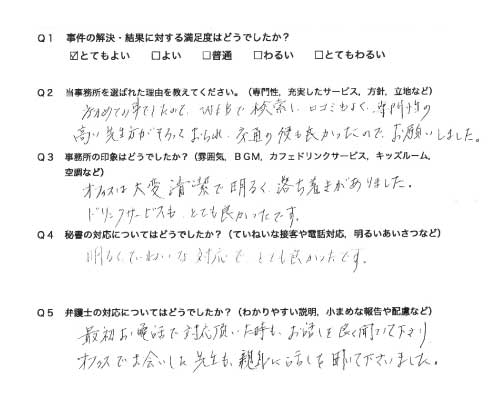 Q1 事件の解決・結果に対する満足度はどうでしたか?
☑とてもよい □よい □普通 □わるい □とてもわるい
Q2 当事務所を選ばれた理由を教えてください。(専門性,充実したサービス,方針,立地など)
初めての事でしたので、WEBで検索し、口コミもよく、専門性の
高い先生方がそろっておられ、交通の便も良かったので、お願いしました。
Q3 事務所の印象はどうでしたか?(雰囲気,BGM,カフェドリンクサービス,キッズルーム,
空調など)
オフィスは大変清潔で明るく、落ち着きがありました。
ドリンクサービスも、とても良かったです。
Q4 秘書の対応についてはどうでしたか?(ていねいな接客や電話対応,明るいあいさつなど)
明るくていねいな対応でとても良かったです。
Q5 弁護士の対応についてはどうでしたか?(わかりやすい説明,小まめな報告や配慮など)
最初お電話で対応頂いた時も、お話しを良く聞いて下さり
オフィスでお会いした先生も、親身に話しを聞いて下さいました。